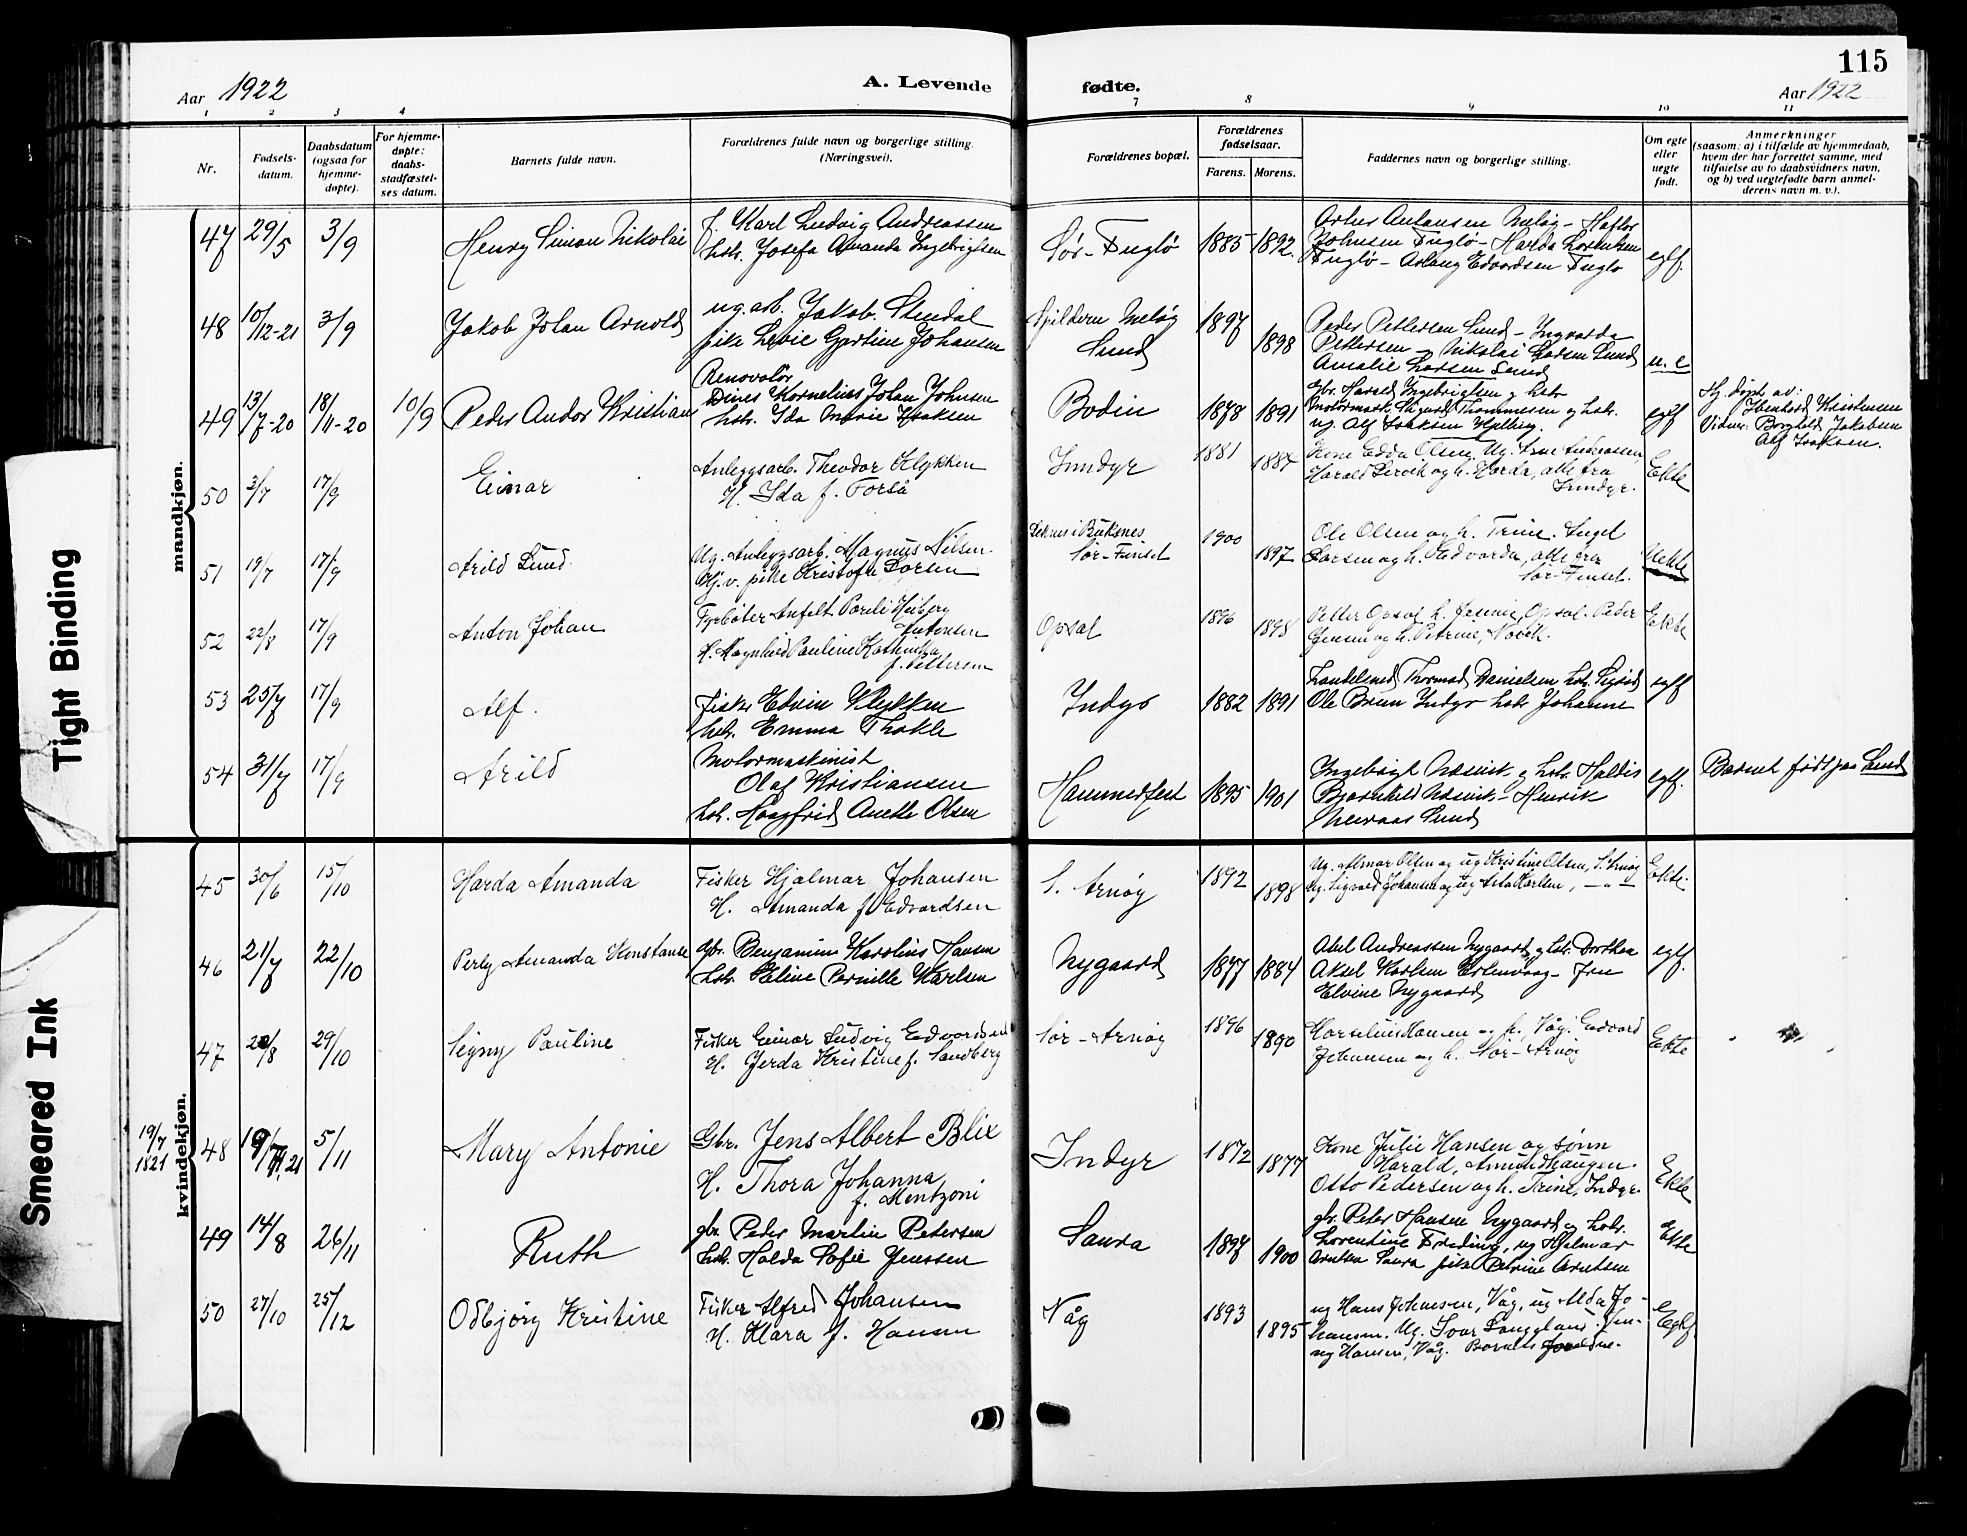 115
Aar 1922
A. Levende
fødte.
Aar 1922
1 2 3 4 7 8 9 10 11
Nr.
Fødsels-
datum.
Daabsdatum
(ogsaa for
hjemme-
døpte).
For hjemme-
døpte:
daabs-
stadfæstel-
ses datum.
Barnets fulde navn.
Forældrenes fulde navn og borgerlige stilling.
(Næringsvei).
Forældrenes bopæl.
Forældrenes
fødselsaar.
Farens. Morens.
Faddernes navn og borgerlige stilling.
Om egte
eller
uegte
født.
Anmerkninger
(saasom: a) i tilfælde av hjemmedaab,
hvem der har forrettet samme, med
tilføielse av to daabsvidners navn,
og b) ved uegtefødte barn anmel-
derens navn m. v.).
mandkjøn.
47 29/5 3/9 Henry Simon Nikolai
f. Karl Ludvig Andreassen
hstr. Josefa Amanda Ingebrigtsen
Sør-Fuglø 1885 1892
Johnsen Fuglø - Harda Lorentzen
Fuglø - Aslaug Edvardsen Fuglø
egf.
48 10/12-21 3/9 Jakob Johan Arnold
ug. arb. Jakob Stendal
pike Levie Gjertine Johansen
Spildern Meløy
Sund
1897 1898
Peder Pettersen Sund - Ingvarda
Pettersen - Nikolai Larsen Sund
Amalie Larsen Sund
u. e
49 13/7-20 18/11-20 10/9 Peder Andor Kristian
Renovatør
Dines Kornelius Johan Johnsen
hstr. Ida Marie Isaksen
Bodin 1878 1891
gbr. Harald Ingebrigtsen og hstr
ug. Alf Isaksen Kjelling.
egf
Hj. døpt av:
Kristensen
Vidner: Borghild Jakobsen
Alf Isaksen.
50 2/7 17/9 Einar
Anleggsarb. Theodor Klykken
H. Ida f. Forså
Inndyr 1881 1887
Kone Edda Olsen, Ug. Arne Andreassen,
Harald Lervik og h. Harda, alle fra
Inndyr.
Ekte
51 19/7 17/9 Arild Sund
Ug. Anleggsarb. Magnus Nilsen
Gj. v. pike Kristofa Larsen
Leknes i Buksnes
Sør-Finset
1900 1897
Ole Olsen og h. Trine.
Larsen og h. Edvarda, alle fra
Sør-Finset.
Uekte
52 22/8 17/9 Anton Johan
Fyrbøter Anfelt Pareli Heiberg
Antonsen
H. Magnhild Pauline Kathinka
f. Pettersen
Opsal 1896 1898
Petter Opsal, h. Jensine, Opsal. Peder
Jensen og h. Petrine, Novik.
Ekte
53 25/7 17/9 Alf.
Fisker Edvin Klykken
hstr. Emma Thakle
Indyr 1882 1891
Landelsmd Thormod Danielsen hstr. Sigrid
Ole Bruun Indyr hstr Johanne
egf
54 31/7 17/9 Arild
Motormaskinist
Olaf Kristiansen
hstr. Haagfrid Anette Olsen
Hammerfest 1895 1901
Ingebrigt Næsvik og hstr. Haldis
Bjarnhild Næsvik - Henrik
Sund
egf.
Barnet født paa Sund
kvindekjøn.
45 30/6 15/10 Harda Amanda
Fisker Hjalmar Johansen
H. Amanda f. Edvardsen
S. Arnøy 1892 1898
Ug. Almar Olsen og ug Kristine Olsen, S. Arnøy
Ug. Sigvard Johansen og ug Asta Karlsen, — „ —
Ekte.
46 21/7 22/10 Perly Amanda Konstanse
gbr. Benjamin Karolius Hansen
hstr. Eline Pernille Karlsen
Nygaard 1877 1884
Abel Andreassen Nygaard og hstr. Dorthea
Aksel Karlsen Estenvaag - Fru
Elvine Nygaard
egf.
47 28/8 29/10 Signy Pauline
Fisker Einar Ludvig Edvardsen
H. Gerda Kristine f. Sandberg
Sør-Arnøy 1896 1890
Marselius Hansen og h. Våg. Edvard
Johansen og h. Sør-Arnøy
Ekte
19/7
1821
48 19/7, 21 5/11 Mary Antonie
Gbr. Jens Albert Blix
H. Thora Johanna
f. Mentzoni
Indyr 1872 1877
Kone Julie Hansen og sønn
Harald, Amundhaugen.
Otto Pedersen og h. Trine, Indyr.
Ekte
49 14/8 26/11 Ruth
gbr. Peder Martin Petersen
hstr. Halda Sofie Jenssen
Saura 1897 1900
gbr. Peter Hansen Nygaard og hstr.
Lorentine Freding, ug Hjelmar
Arntsen Saura pike Petrine Arntsen
Ekte
50 27/10 25/12 Odbjørg Kristine
Fisker Alfred Johansen
H. Klara f. Hansen
Våg 1893 1895
ug Hans Johansen, Våg, ug Alda Jo-
hansen. Ug. Ivar Langsland. Jen-
ny Hansen, Våg. Barnets foreldre.
Egf.
Tight Binding
Smeared Ink